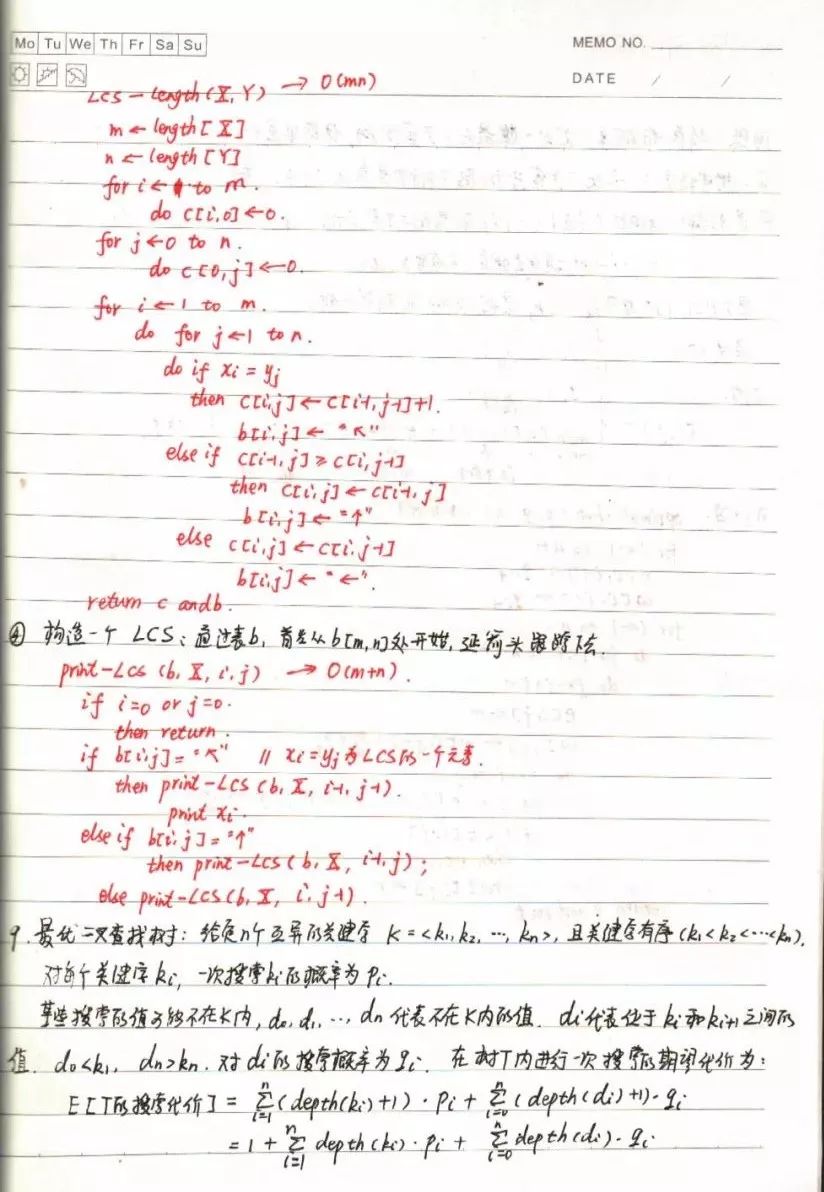 Mo Tu We Th Fr Sa Su
MEMO NO.
DATE / /
LCS-length(X,Y) → O(mn)
m ← length[X]
n ← length[Y]
for i ← 1 to m.
do c[i,0] ← 0.
for j ← 0 to n.
do c[0,j] ← 0.
for i ← 1 to m.
do for j ← 1 to n.
do if xi = yj
then c[i,j] ← c[i-1,j-1]+1.
b[i,j] ← "↖"
else if c[i-1,j] ≥ c[i,j-1]
then c[i,j] ← c[i-1,j]
b[i,j] ← "↑"
else c[i,j] ← c[i,j-1]
b[i,j] ← "←".
return c and b.
④ 构造一个 LCS: 通过表b, 首先从b[m,n]处开始, 延箭头跟踪下去.
print-LCS (b, X, i, j) → O(m+n).
if i=0 or j=0.
then return.
if b[i,j]= "↖" // xi=yj为LCS的一个元素.
then print-LCS (b, X, i-1, j-1).
print xi.
else if b[i,j]="↑"
then print-LCS (b, X, i-1, j);
else print-LCS(b, X, i, j-1).
9. 最优二叉查找树: 给定n个互异的关键字 K=<k1,k2, …, kn>, 且关键字有序(k1<k2<…<kn),
对每个关键字ki, 一次搜索ki的概率为pi.
某些搜索的值可能不在K内, d0, d1, …, dn 代表不在K内的值. di代表位于ki和ki+1之间的
值. d0<k1, dn>kn. 对di的搜索概率为qi. 在树T内进行一次搜索的期望代价为:
E[T的搜索代价] = Σ(i=1→n) (depth(ki)+1)·pi + Σ(i=0→n) (depth(di)+1)·qi
= 1 + Σ(i=1→n) depth(ki)·pi + Σ(i=0→n) depth(di)·qi.